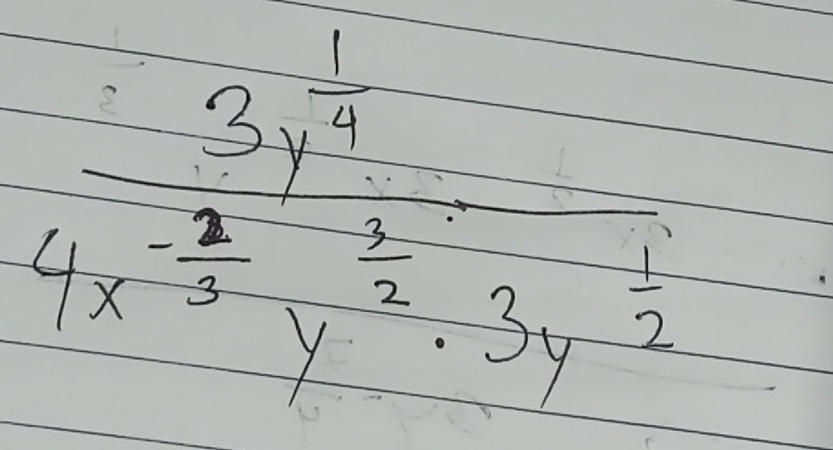 3y^(1/4)
4x^(-2/3) y^(3/2) · 3y^(1/2)